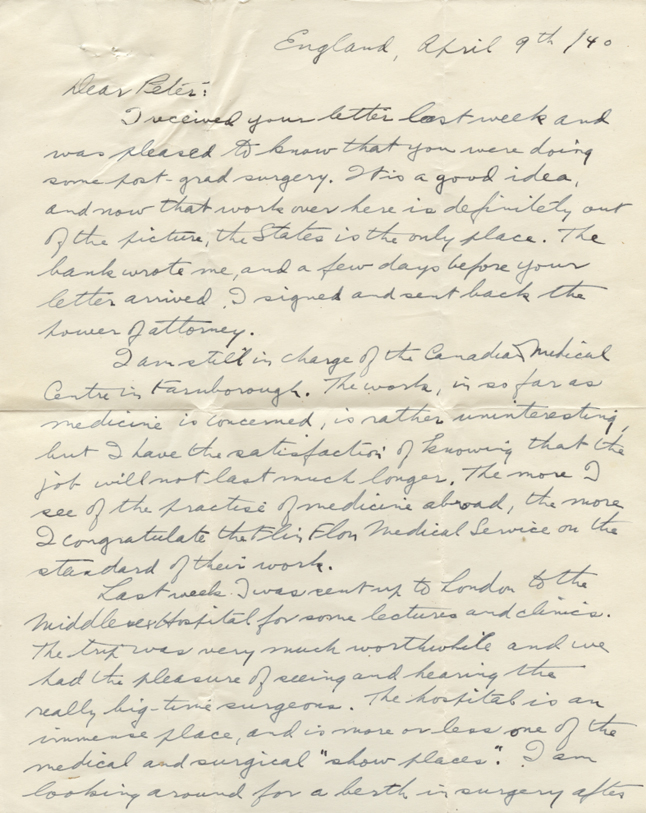 England, April 9th /40
Dear Peter:
I received your letter last week and
was pleased to know that you were doing
some post-grad surgery. It is a good idea,
and now that work over here is definitely out
of the picture, the States is the only place. The
bank wrote me, and a few days before your
letter arrived, I signed and sent back the
power of attorney.
I am still in charge of the Canadian Medical
Centre in Farnborough. The work, in so far as
medicine is concerned, is rather uninteresting,
but I have the satisfaction of knowing that the
job will not last much longer. The more I
see of the practise of medicine abroad, the more
I congratulate the Flin Flon Medical Service on the
standard of their work.
Last week I was sent up to London to the
Middlesex Hospital for some lectures and clinics.
The trip was very much worthwhile and we
had the pleasure of seeing and hearing the
really big-time surgeons. The hospital is an
immense place, and is more or less one of the
medical and surgical "show places". I am
looking around for a berth in surgery after